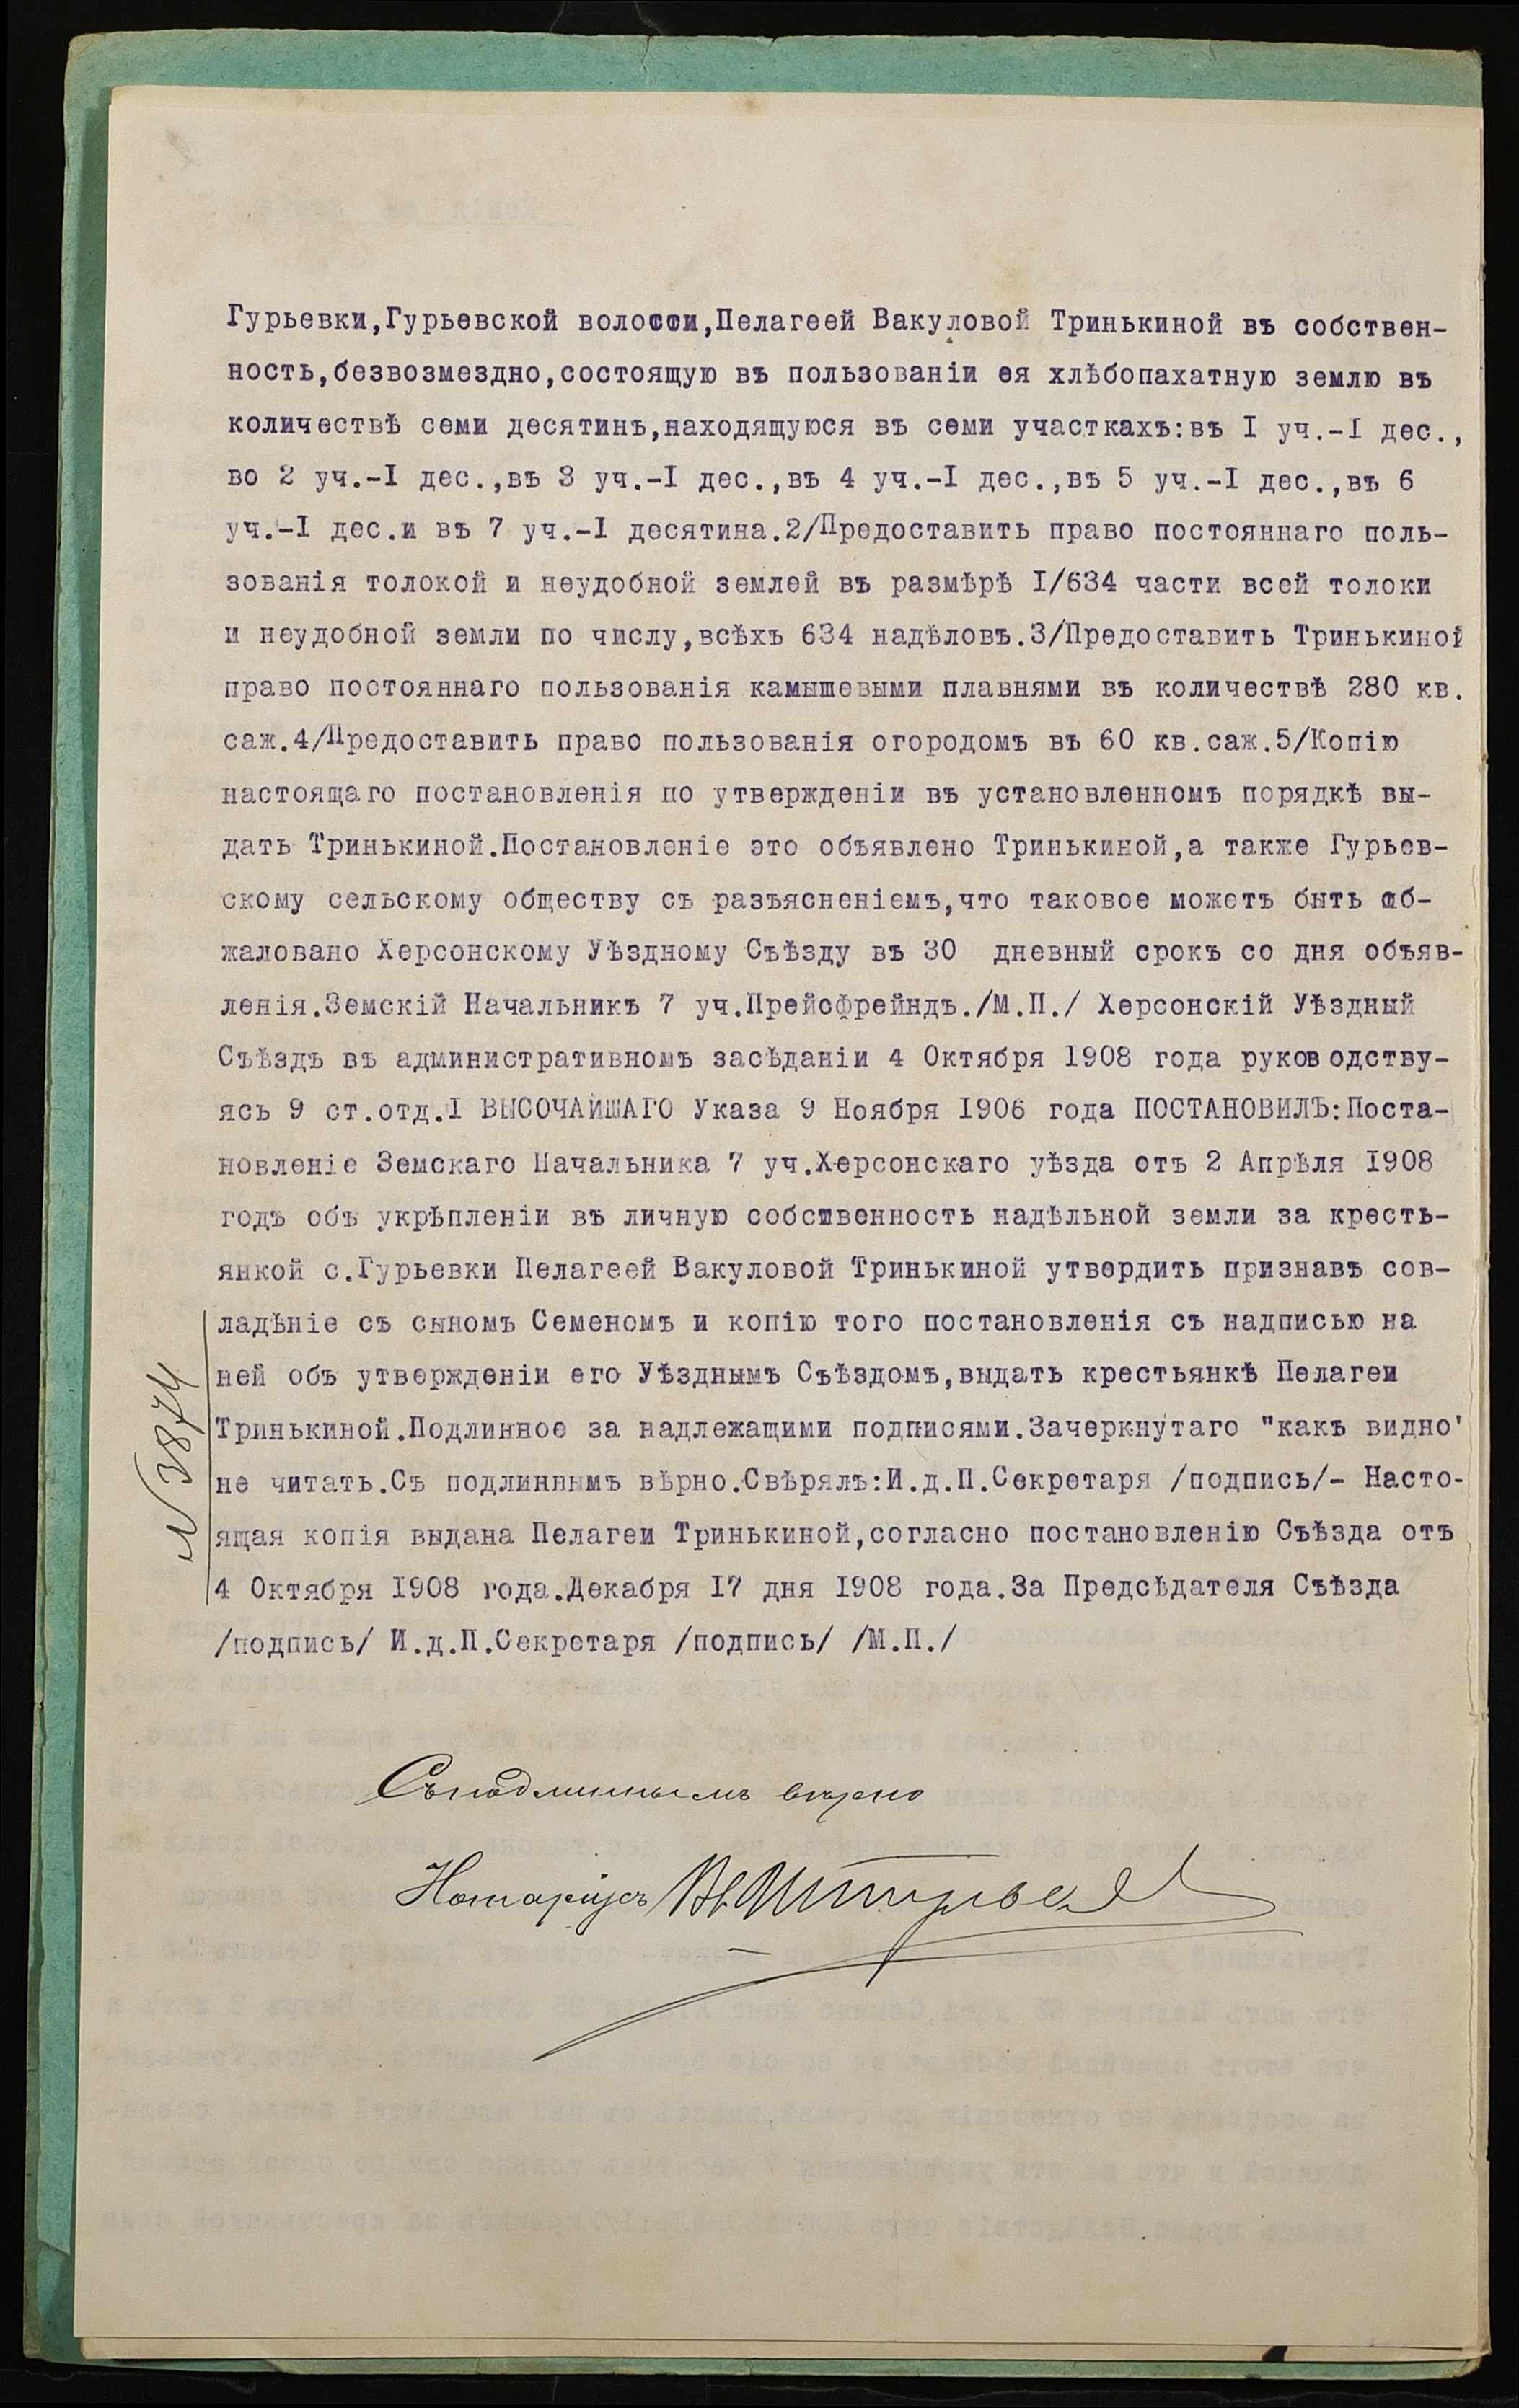 Гурьевки,Гурьевской волости,Пелагеей Вакуловой Тринькиной въ собствен-
ность,безвозмездно,состоящую въ пользованіи ея хлѣбопахатную землю въ
количествѣ семи десятинъ,находящуюся въ семи участкахъ:въ I уч.-I дес.,
во 2 уч.-I дес.,въ 3 уч.-I дес.,въ 4 уч.-I дес.,въ 5 уч.-I дес.,въ 6
уч.-I дес.и въ 7 уч.-I десятина.2/Предоставить право постояннаго поль-
зованія толокой и неудобной землей въ размѣрѣ I/634 части всей толоки
и неудобной земли по числу,всѣхъ 634 надѣловъ.3/Предоставить Тринькиной
право постояннаго пользованія камышевыми плавнями въ количествѣ 280 кв.
саж.4/Предоставить право пользованія огородомъ въ 60 кв.саж.5/Копію
настоящаго постановленія по утвержденіи въ установленномъ порядкѣ вы-
дать Тринькиной.Постановленіе это объявлено Тринькиной,а также Гурьев-
скому сельскому обществу съ разъясненіемъ,что таковое можетъ быть об-
жаловано Херсонскому Уѣздному Съѣзду въ 30 дневный срокъ со дня объяв-
ленія.Земскій Начальникъ 7 уч.Прейсфрейндъ./М.П./ Херсонскій Уѣздный
Съѣздъ въ административномъ засѣданіи 4 Октября 1908 года руководству-
ясь 9 ст.отд.I ВЫСОЧАЙШАГО Указа 9 Ноября I906 года ПОСТАНОВИЛЪ:Поста-
новленіе Земскаго Начальника 7 уч.Херсонскаго уѣзда отъ 2 Апрѣля I908
годъ объ укрѣпленіи въ личную собственность надѣльной земли за кресть-
янкой с.Гурьевки Пелагеей Вакуловой Тринькиной утвердить признавъ сов-
ладѣніе съ сыномъ Семеномъ и копію того постановленія съ надписью на
ней объ утвержденіи его Уѣзднымъ Съѣздомъ,выдать крестьянкѣ Пелагеи
Тринькиной.Подлинное за надлежащими подписями.Зачеркнутаго "какъ видно'
не читать.Съ подлиннымъ вѣрно.Свѣрялъ:И.д.П.Секретаря /подпись/- Насто-
ящая копія выдана Пелагеи Тринькиной,согласно постановленію Съѣзда отъ
4 Октября I908 года.Декабря I7 дня I908 года.За Предсѣдателя Съѣзда
/подпись/ И.д.П.Секретаря /подпись/ /М.П./
N 3874
Съ подлиннымъ вѣрно
Нотаріусъ